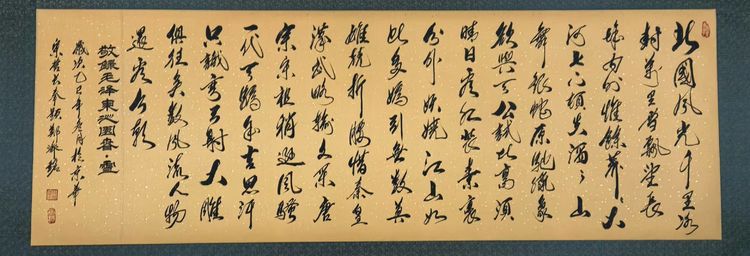 北國風光千里冰
封萬里雪飄望長
城內外惟餘莽々大
河上下頓失滔々山
舞銀蛇原馳蠟象
欲與天公試比高須
晴日看紅裝素裹
分外妖嬈江山如
此多嬌引無數英
雄競折腰惜秦皇
漢武略輸文采唐
宗宋祖稍遜風騷
一代天驕成吉思汗
只識彎弓射大雕
俱往矣數風流人物
還看今朝
敬錄毛澤東沁園春·雪
歲次乙巳年 月於京華